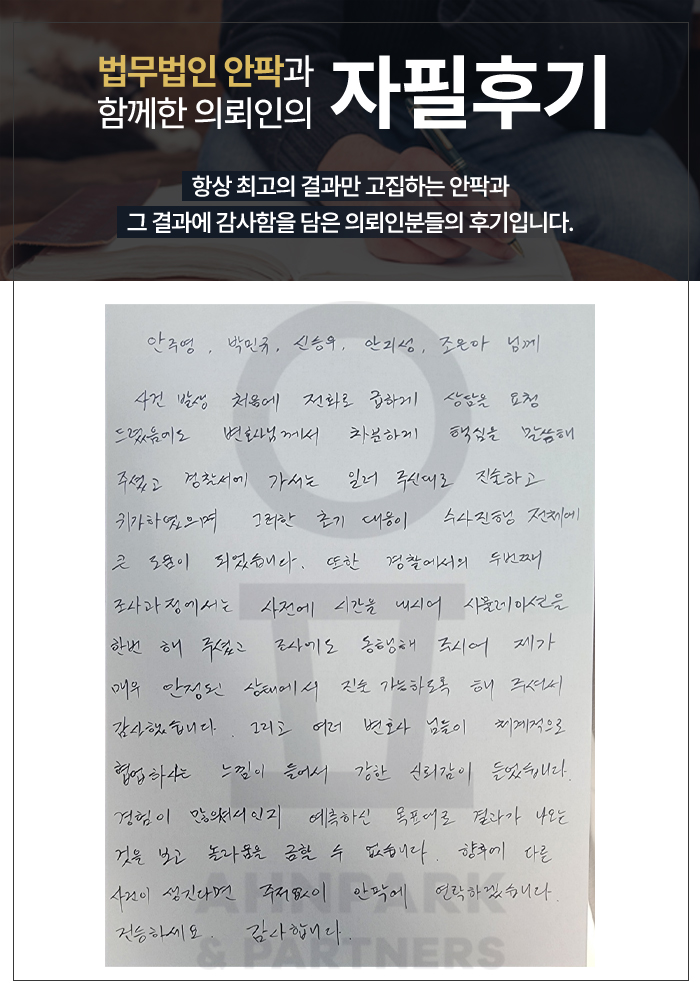 법무법인 안팍과
함께한 의뢰인의
자필후기
항상 최고의 결과만 고집하는 안팍과
그 결과에 감사함을 담은 의뢰인분들의 후기입니다.
안주영, 박민규, 신승우, 안지성, 조은아 님께
사건 발생 처음에 전화로 급하게 상담을 요청
드렸음에도 변호사님께서 차분하게 핵심을 말씀해
주셨고 경찰서에 가서는 일러 주신대로 진술하고
귀가하였으며 그러한 초기 대응이 수사진행 전체에
큰 도움이 되었습니다. 또한 경찰에서의 두번째
조사과정에서는 사전에 시간을 내시어 시뮬레이션을
한번 해 주셨고 조사에도 동행해 주시어 제가
매우 안정된 상태에서 진술 가능하도록 해 주셔서
감사했습니다. 그리고 여러 변호사 님들이 체계적으로
협업하시는 느낌이 들어서 강한 신뢰감이 들었습니다.
경험이 많으셔서인지 예측하신 목표대로 결과가 나오는
것을 보고 놀라움을 금할 수 없습니다. 향후에 다른
사건이 생긴다면 주저없이 안팍에 연락하겠습니다.
건승하세요. 감사합니다.
AHNPARK
& PARTNERS